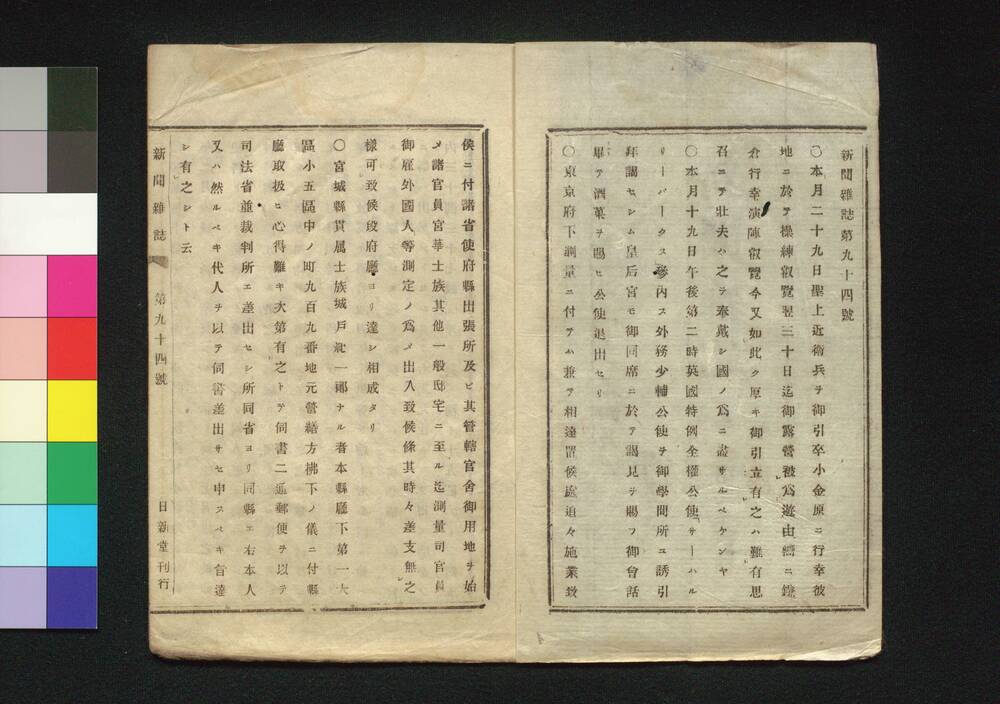 新聞雜誌第九十四號
〇本月二十九日聖上近衛兵ヲ御引卒小金原ニ行幸彼
地ニ於テ操練叡覽翌三十日迄御露營被爲遊由嚮ニ鎌
倉行幸演陣叡覽今又如此ク厚キ御引立有之ハ難有思
召ニテ壯夫ハ之ヲ奉戴シ國ノ爲ニ盡サルベケンヤ
〇本月十九日午後第二時英國特例全權公使サーハル
リーパークス參內ス外務少輔公使ヲ御學問所ユ誘引
拜謁セシム皇后宮モ御同席ニ於テ謁見ヲ賜フ御會話
畢テ酒菓ヲ賜ヒ公使退出セリ
〇東京府下測量ニ付テハ兼テ相達置候處追々施業致
候ニ付諸省使府縣出張所及ヒ其管轄官舍御用地ヲ始
メ諸官員宮華士族其他一般邸宅ニ至ル迄測量司官員
御雇外國人等測定ノ爲メ出入致候條其時々差支無之
樣可致候段府廳ヨリ達シ相成タリ
〇宮城縣貫属士族城戶紀一郞ナル者本縣廳下第一大
區小五區中ノ町九百九番地元營繕方拂下ノ儀ニ付縣
廳取扱ヒ心得難キ次第有之トテ伺書二通郵便ヲ以テ
司法省並裁判所エ差出セシ所同省ヨリ同縣エ右本人
又ハ然ルベキ代人ヲ以テ伺書差出サセ申スベキ旨達
シ有之シト云
新聞雜誌 第九十四號 日新堂刊行